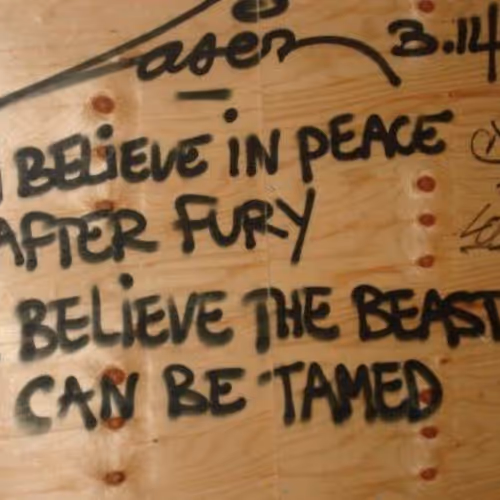 3.14
BELiEVE iN PEACE
AFTER FURY
BELiEVE THE BEAST
CAN BE TAMED